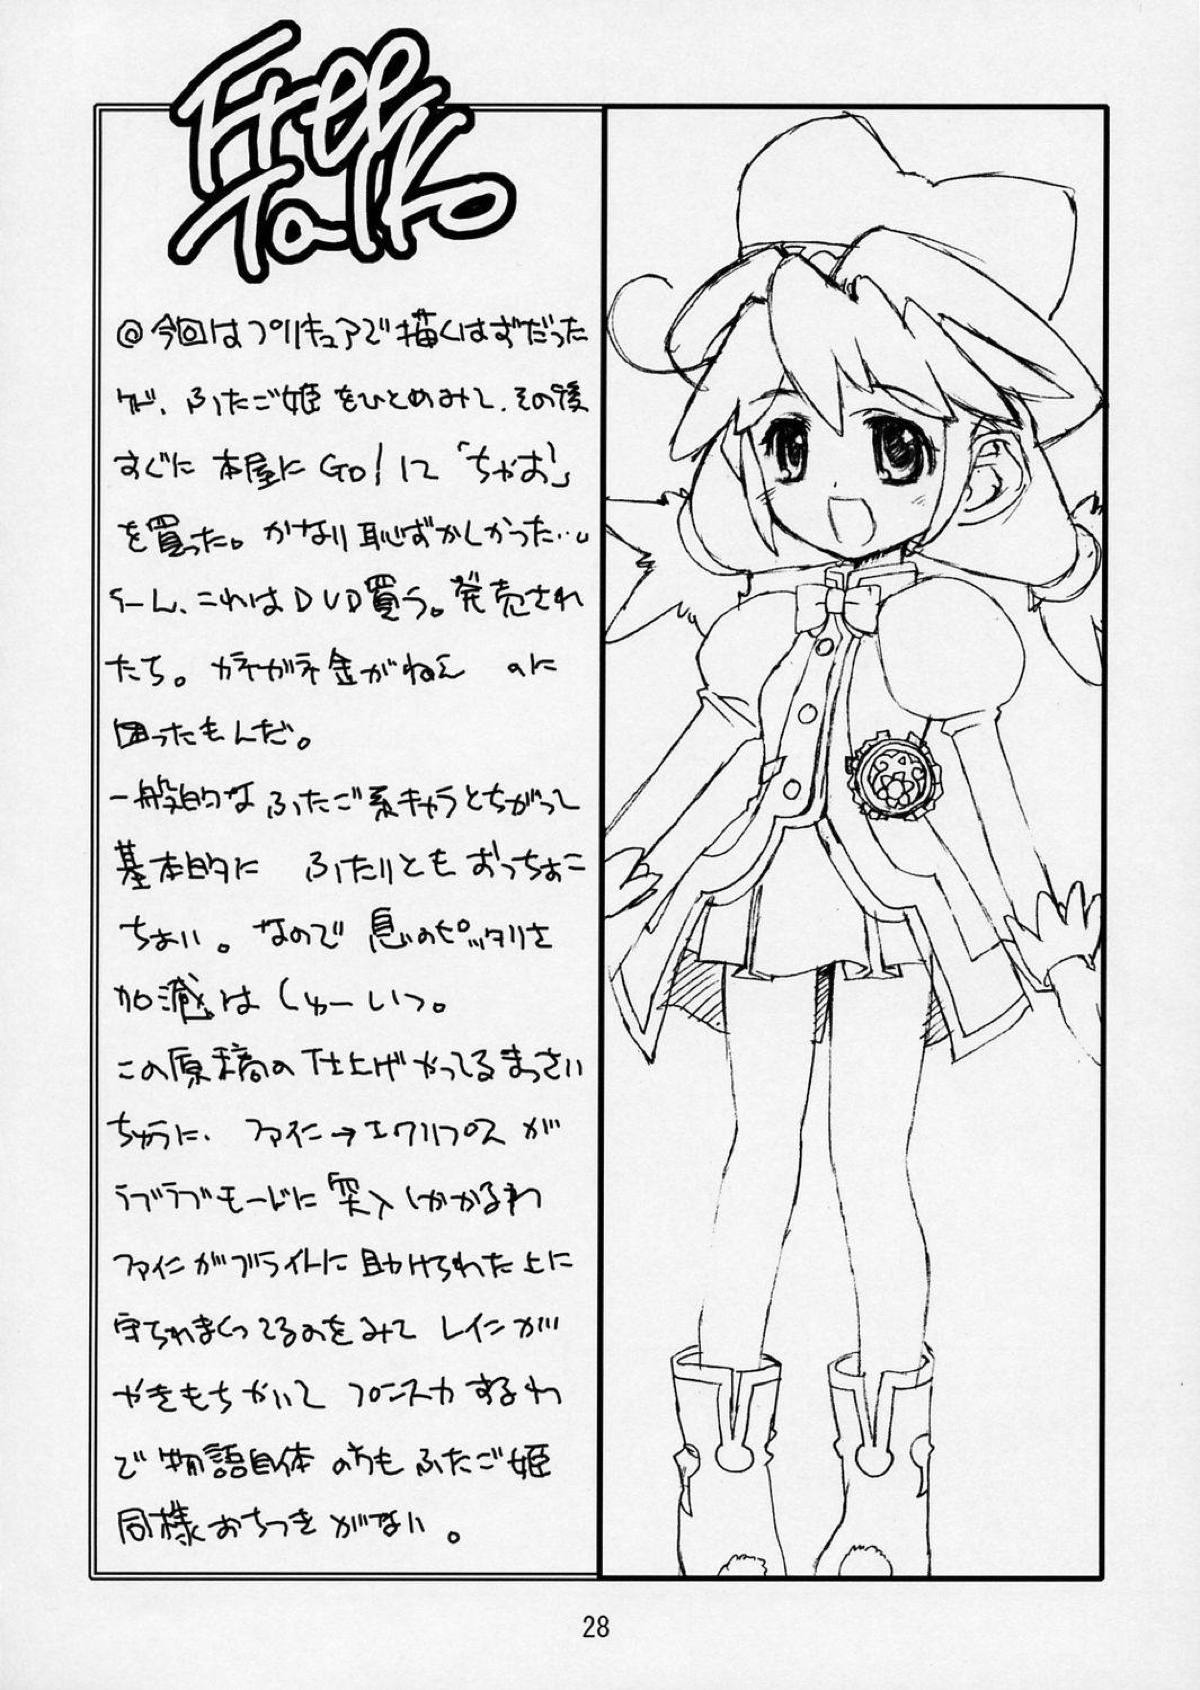 Free
Talk
@今回はプリキュアで描くはずだった
けど、ふたご姫をひとめみて、その後
すぐに本屋にGO!して「ちゃお」
を買った。かなり恥ずかしかった…。
うーん、これはDVD買う。発売され
たち。カネがネ金がねえ のに
困ったもんだ。
一般的なふたご系キャラとちがって
基本的に ふたりともおっちょこ
ちょい。なので 息のピッタリさ
加減はしゅーいつ。
この原稿の仕上げやってるまっさい
ちゅうに、ファイン→エクリプスが
ラブラブモードに突入しかかるわ
ファインがブライトに助けられた上に
守られまくってるのをみて レインが
やきもちやいて プンスカするわ
で物語自体の方もふたご姫
同様おちつきがない。
28